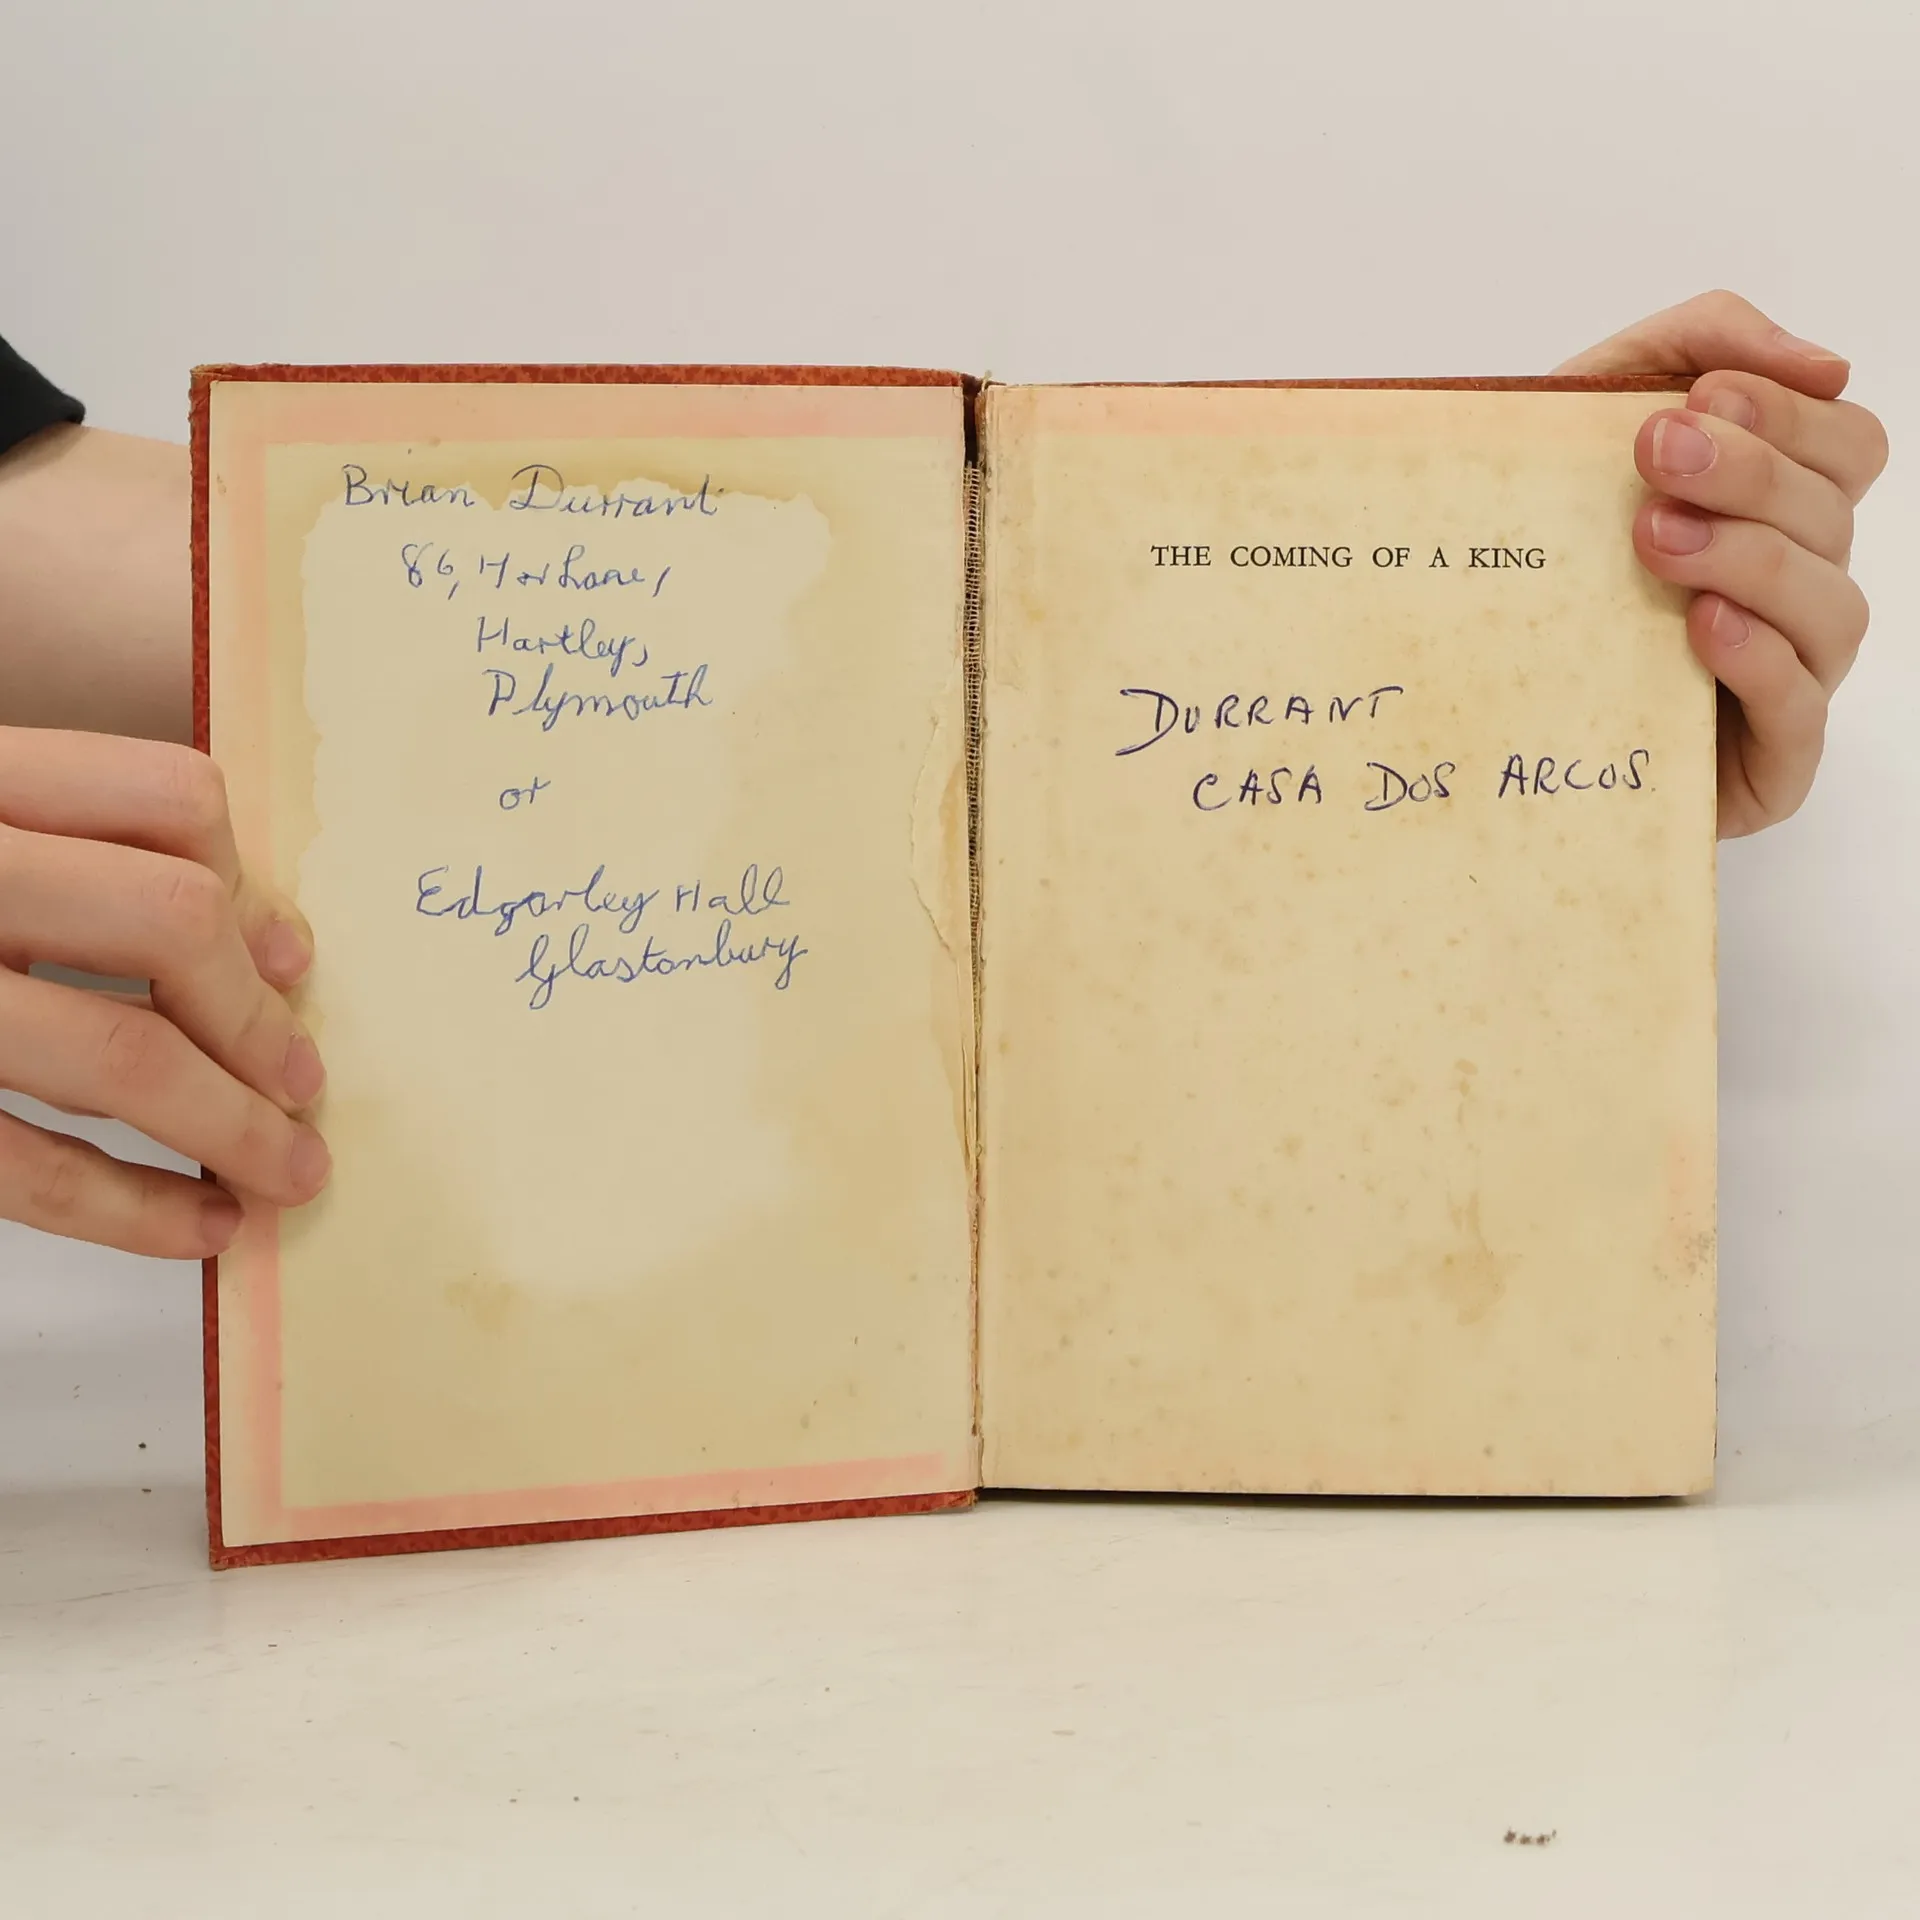 Brian Durrant
86, Horhane,
Hartley,
Plymouth
or
Edgarley Hall
Glastonbury
THE COMING OF A KING
DURRANT
CASA DOS ARCOS.